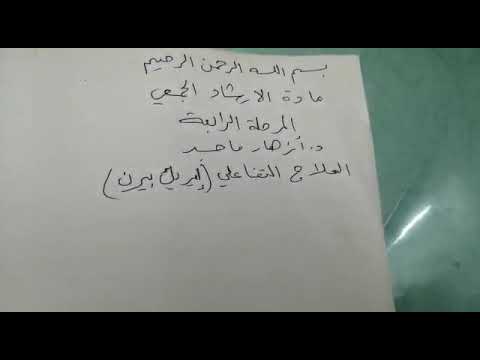 بسم الله الرحمن الرحيم
مادة الارشاد الجمعي
المرحلة الرابعة
د. أزهار ماجد
العلاج التفاعلي (إيريك بيرن)